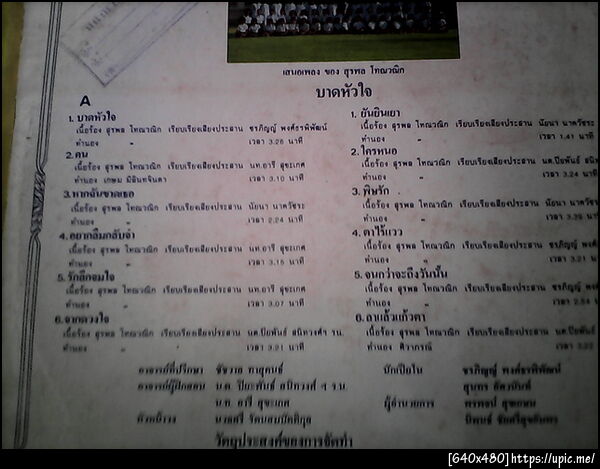 เสนอเพลง ของ สุรพล โทณวณิก
บาดหัวใจ
A
1. บาดหัวใจ
เนื้อร้อง สุรพล โทณวณิก เรียบเรียงเสียงประสาน ชรภิญญ์ พงศ์ธรพิพัฒน์
ทำนอง " เวลา 3.26 นาที
2. คน
เนื้อร้อง สุรพล โทณวณิก เรียบเรียงเสียงประสาน นท.อารี สุขะเกศ
ทำนอง เกษม มิลินทจินดา เวลา 3.10 นาที
3. หากฉันขาดเธอ
เนื้อร้อง สุรพล โทณวณิก เรียบเรียงเสียงประสาน นัยนา นาควัชระ
ทำนอง " เวลา 2.24 นาที
4. อยากลืมกลับจำ
เนื้อร้อง สุรพล โทณวณิก เรียบเรียงเสียงประสาน นท.อารี สุขะเกศ
ทำนอง " เวลา 3.15 นาที
5. รักลึกจมใจ
เนื้อร้อง สุรพล โทณวณิก เรียบเรียงเสียงประสาน นท.อารี สุขะเกศ
ทำนอง " เวลา 3.07 นาที
6. จากดวงใจ
เนื้อร้อง สุรพล โทณวณิก เรียบเรียงเสียงประสาน นต.ปิยะพันธ์ สนิทวงศ์ฯ รน.
ทำนอง " เวลา 3.21 นาที
1. ยันยินเยา
เนื้อร้อง สุรพล โทณวณิก เรียบเรียงเสียงประสาน นัยนา นาควัชระ
ทำนอง " เวลา 1.41 นาที
2. ใครหนอ
เนื้อร้อง สุรพล โทณวณิก เรียบเรียงเสียงประสาน นต.ปิยพันธ์
ทำนอง " เวลา 3.24 นาที
3. พิษรัก
เนื้อร้อง สุรพล โทณวณิก เรียบเรียงเสียงประสาน นัยนา นาควัชระ
ทำนอง " เวลา 3.39
4. ตาไร้แวว
เนื้อร้อง สุรพล โทณวณิก เรียบเรียงเสียงประสาน ชรภิญญ์
ทำนอง " เวลา 3.21
5. จนกว่าจะถึงวันนั้น
เนื้อร้อง สุรพล โทณวณิก เรียบเรียงเสียงประสาน ชรภิญญ์
ทำนอง " เวลา 2.54
6. ลาแล้วแก้วตา
เนื้อร้อง สุรพล โทณวณิก เรียบเรียงเสียงประสาน นต.ปิยพันธ์
ทำนอง ศิวาภรณ์ เวลา 3.22
อาจารย์ที่ปรึกษา ชัชวาล
อาจารย์ผู้ฝึกสอน น.ต. ปิยะพันธ์ สนิทวงศ์ ฯ ร.น.
น.ท. อารี สุขะเกศ
หัวหน้าวง นายเสรี
บักเปียโน ชรภิญญ์ พงศ์ธรพิพัฒน์
สุนทร
ผู้อำนวยการ
วัตถุประสงค์ของการจัดทำ
[640x480]https://upic.me/